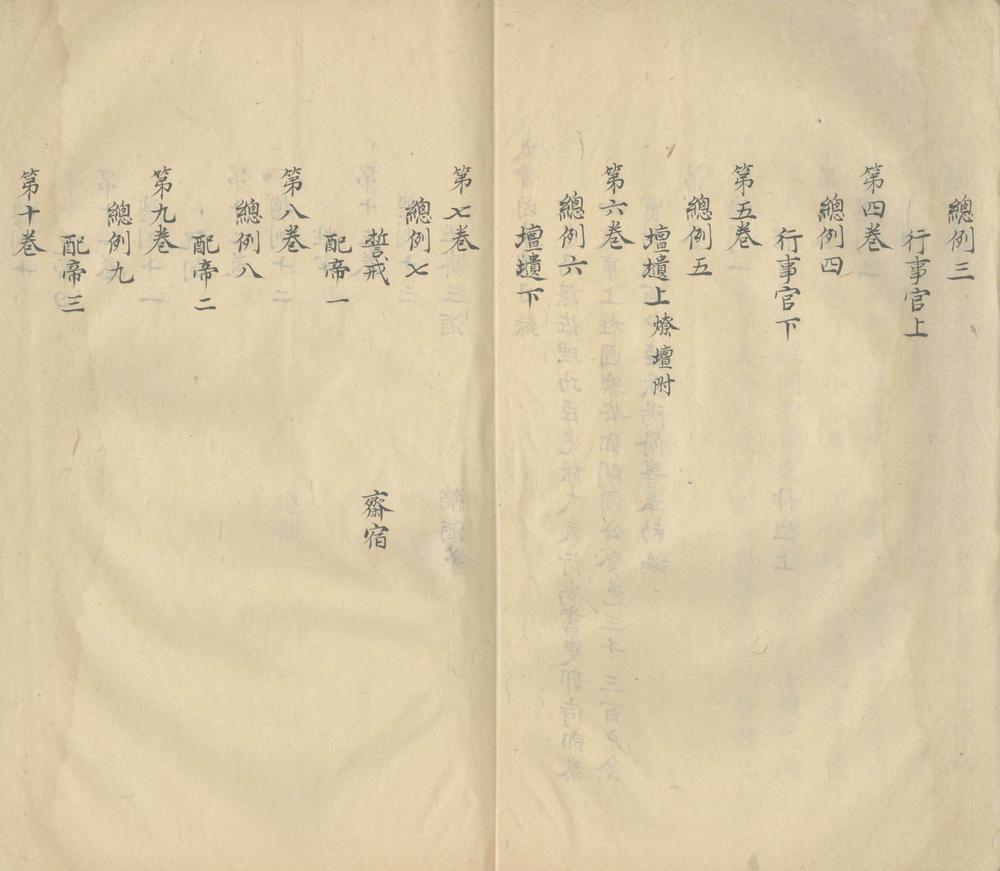 總例三
行事官上
第四卷
總例四
行事官下
第五卷
總例五
壇壝上燎壇附
第六卷
總例六
壇壝下
第七卷
總例七
誓戒 齋宿
配帝一
第八卷
總例八
配帝二
第九卷
總例九
配帝三
第十卷